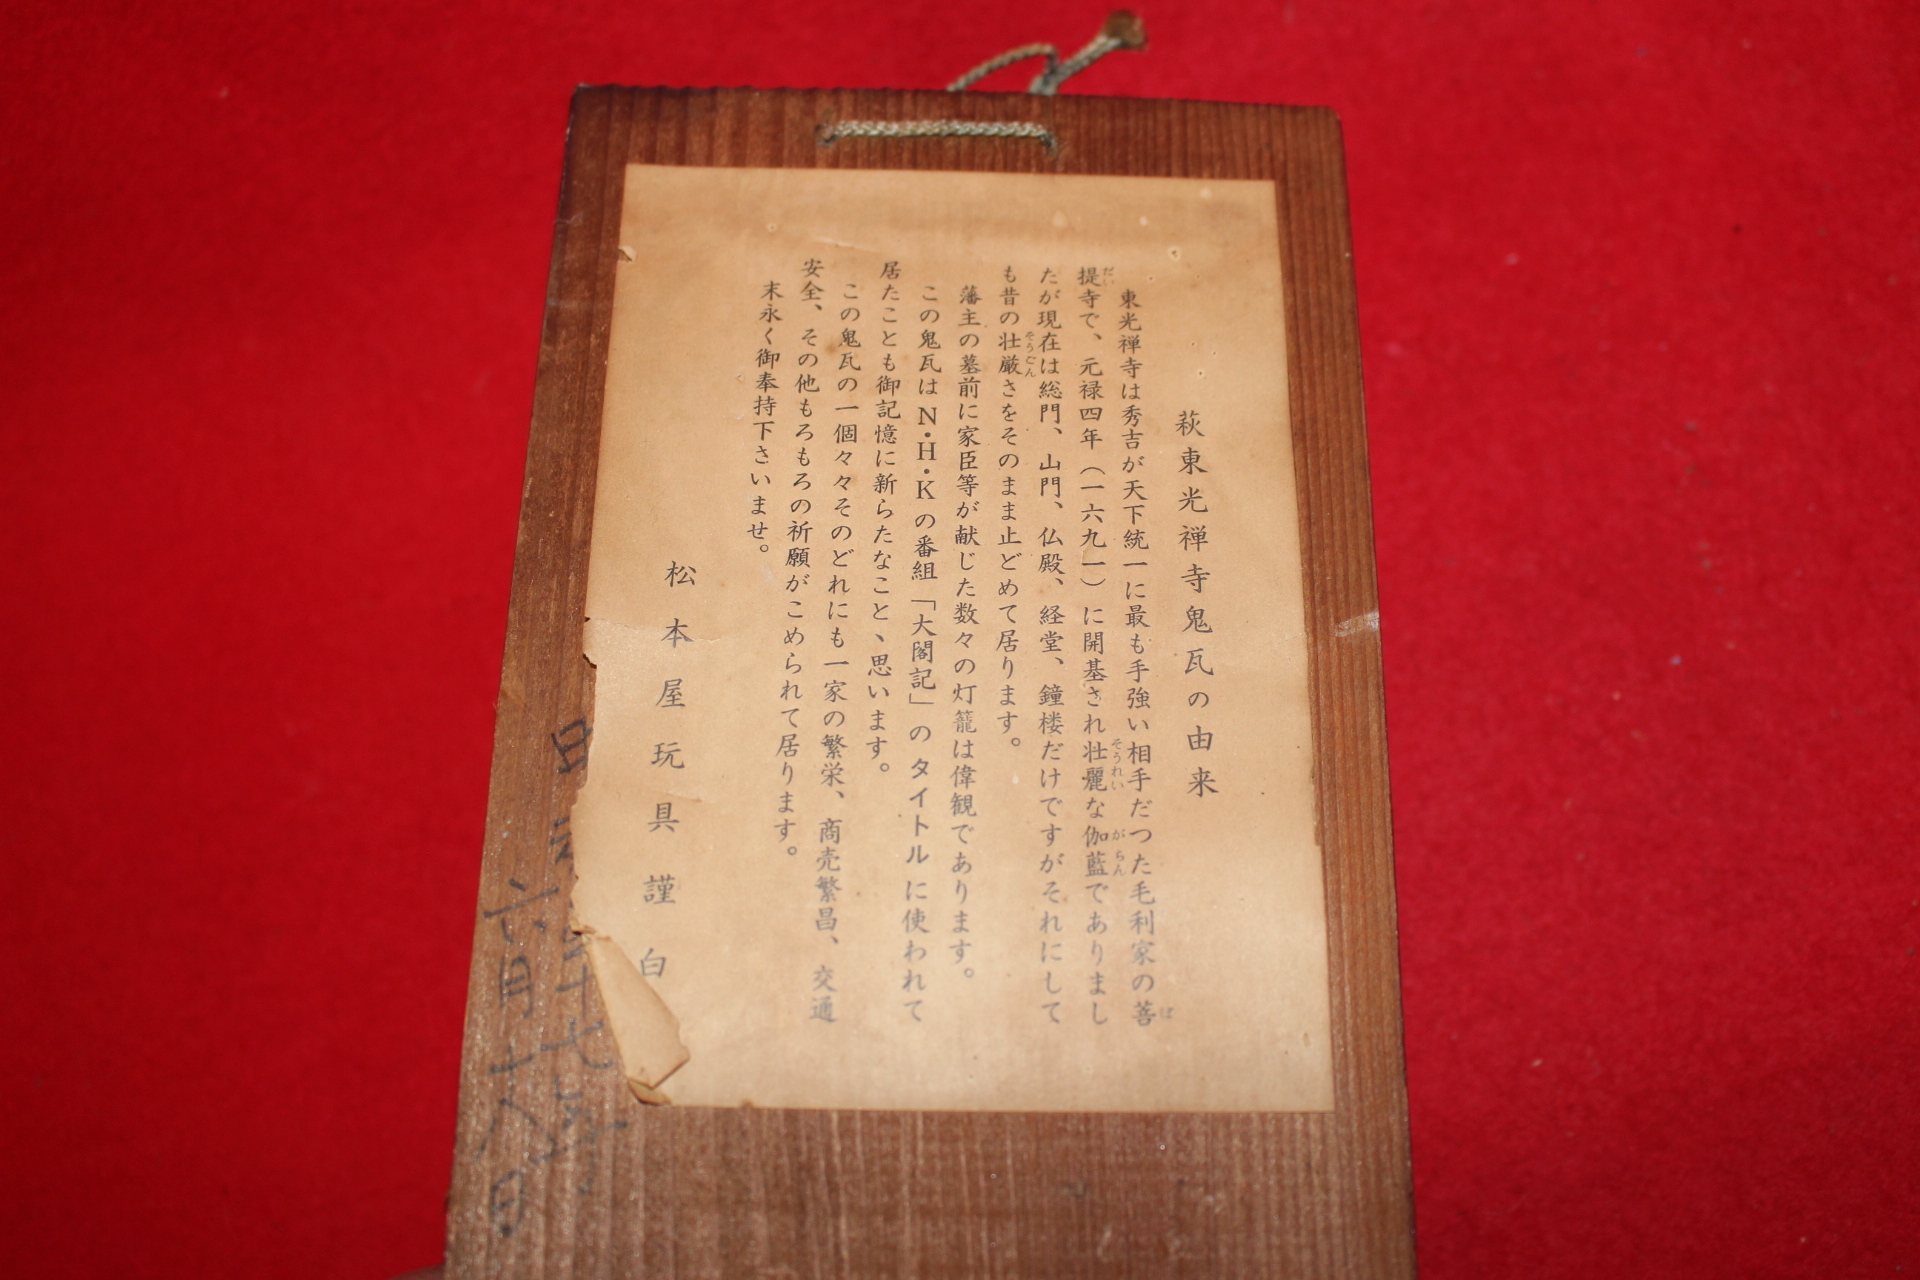 萩東光禅寺鬼瓦の由来
東光禅寺は秀吉が天下統一に最も手強い相手だつた毛利家の菩
提寺で、元禄四年(一六九一)に開基され壮麗な伽藍でありまし
たが現在は総門、山門、仏殿、経堂、鐘楼だけですがそれにして
も昔の壮厳さをそのまま止どめて居ります。
藩主の墓前に家臣等が献じた数々の灯籠は偉観であります。
この鬼瓦はN・H・Kの番組「大閣記」のタイトルに使われて
居たことも御記憶に新らたなこと、思います。
この鬼瓦の一個々々そのどれにも一家の繁栄、商売繁昌、交通
安全、その他もろもろの祈願がこめられて居ります。
末永く御奉持下さいませ。
松本屋玩具謹白
四十七年
六月一八日